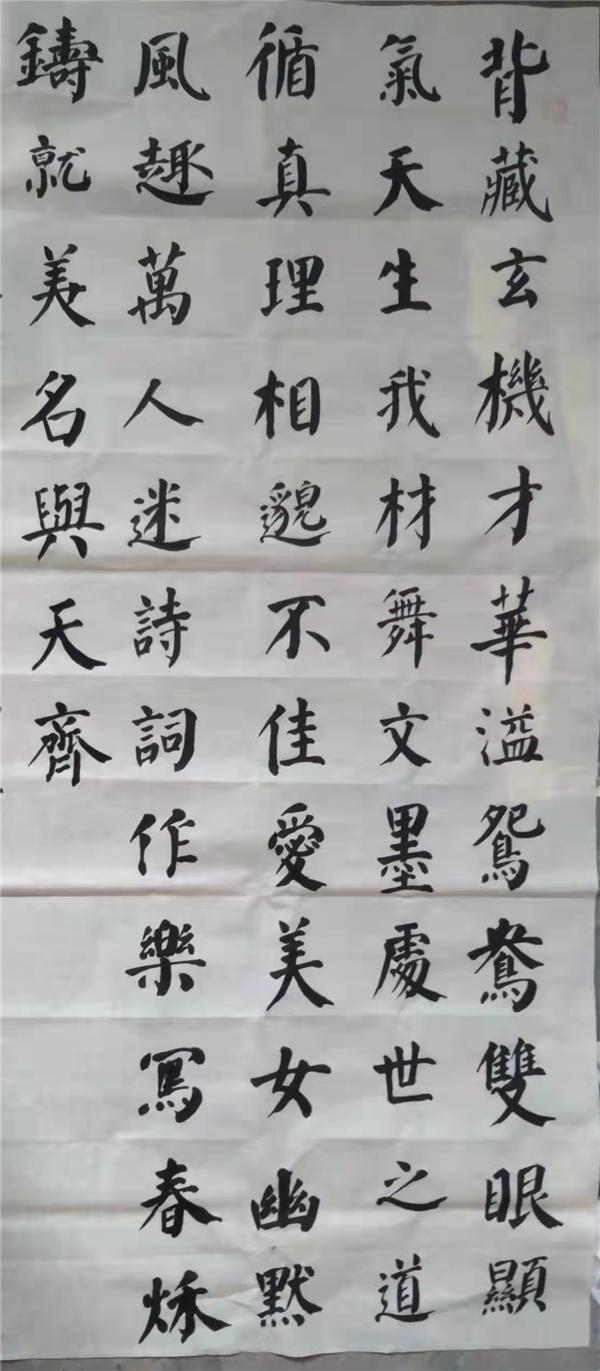 背藏玄機才華溢鴛鴦雙眼顯
氣天生我材舞文墨處世之道
循真理相邈不佳愛美女幽默
風趣萬人迷詩詞作樂寫春秌
鑄就美名與天齊